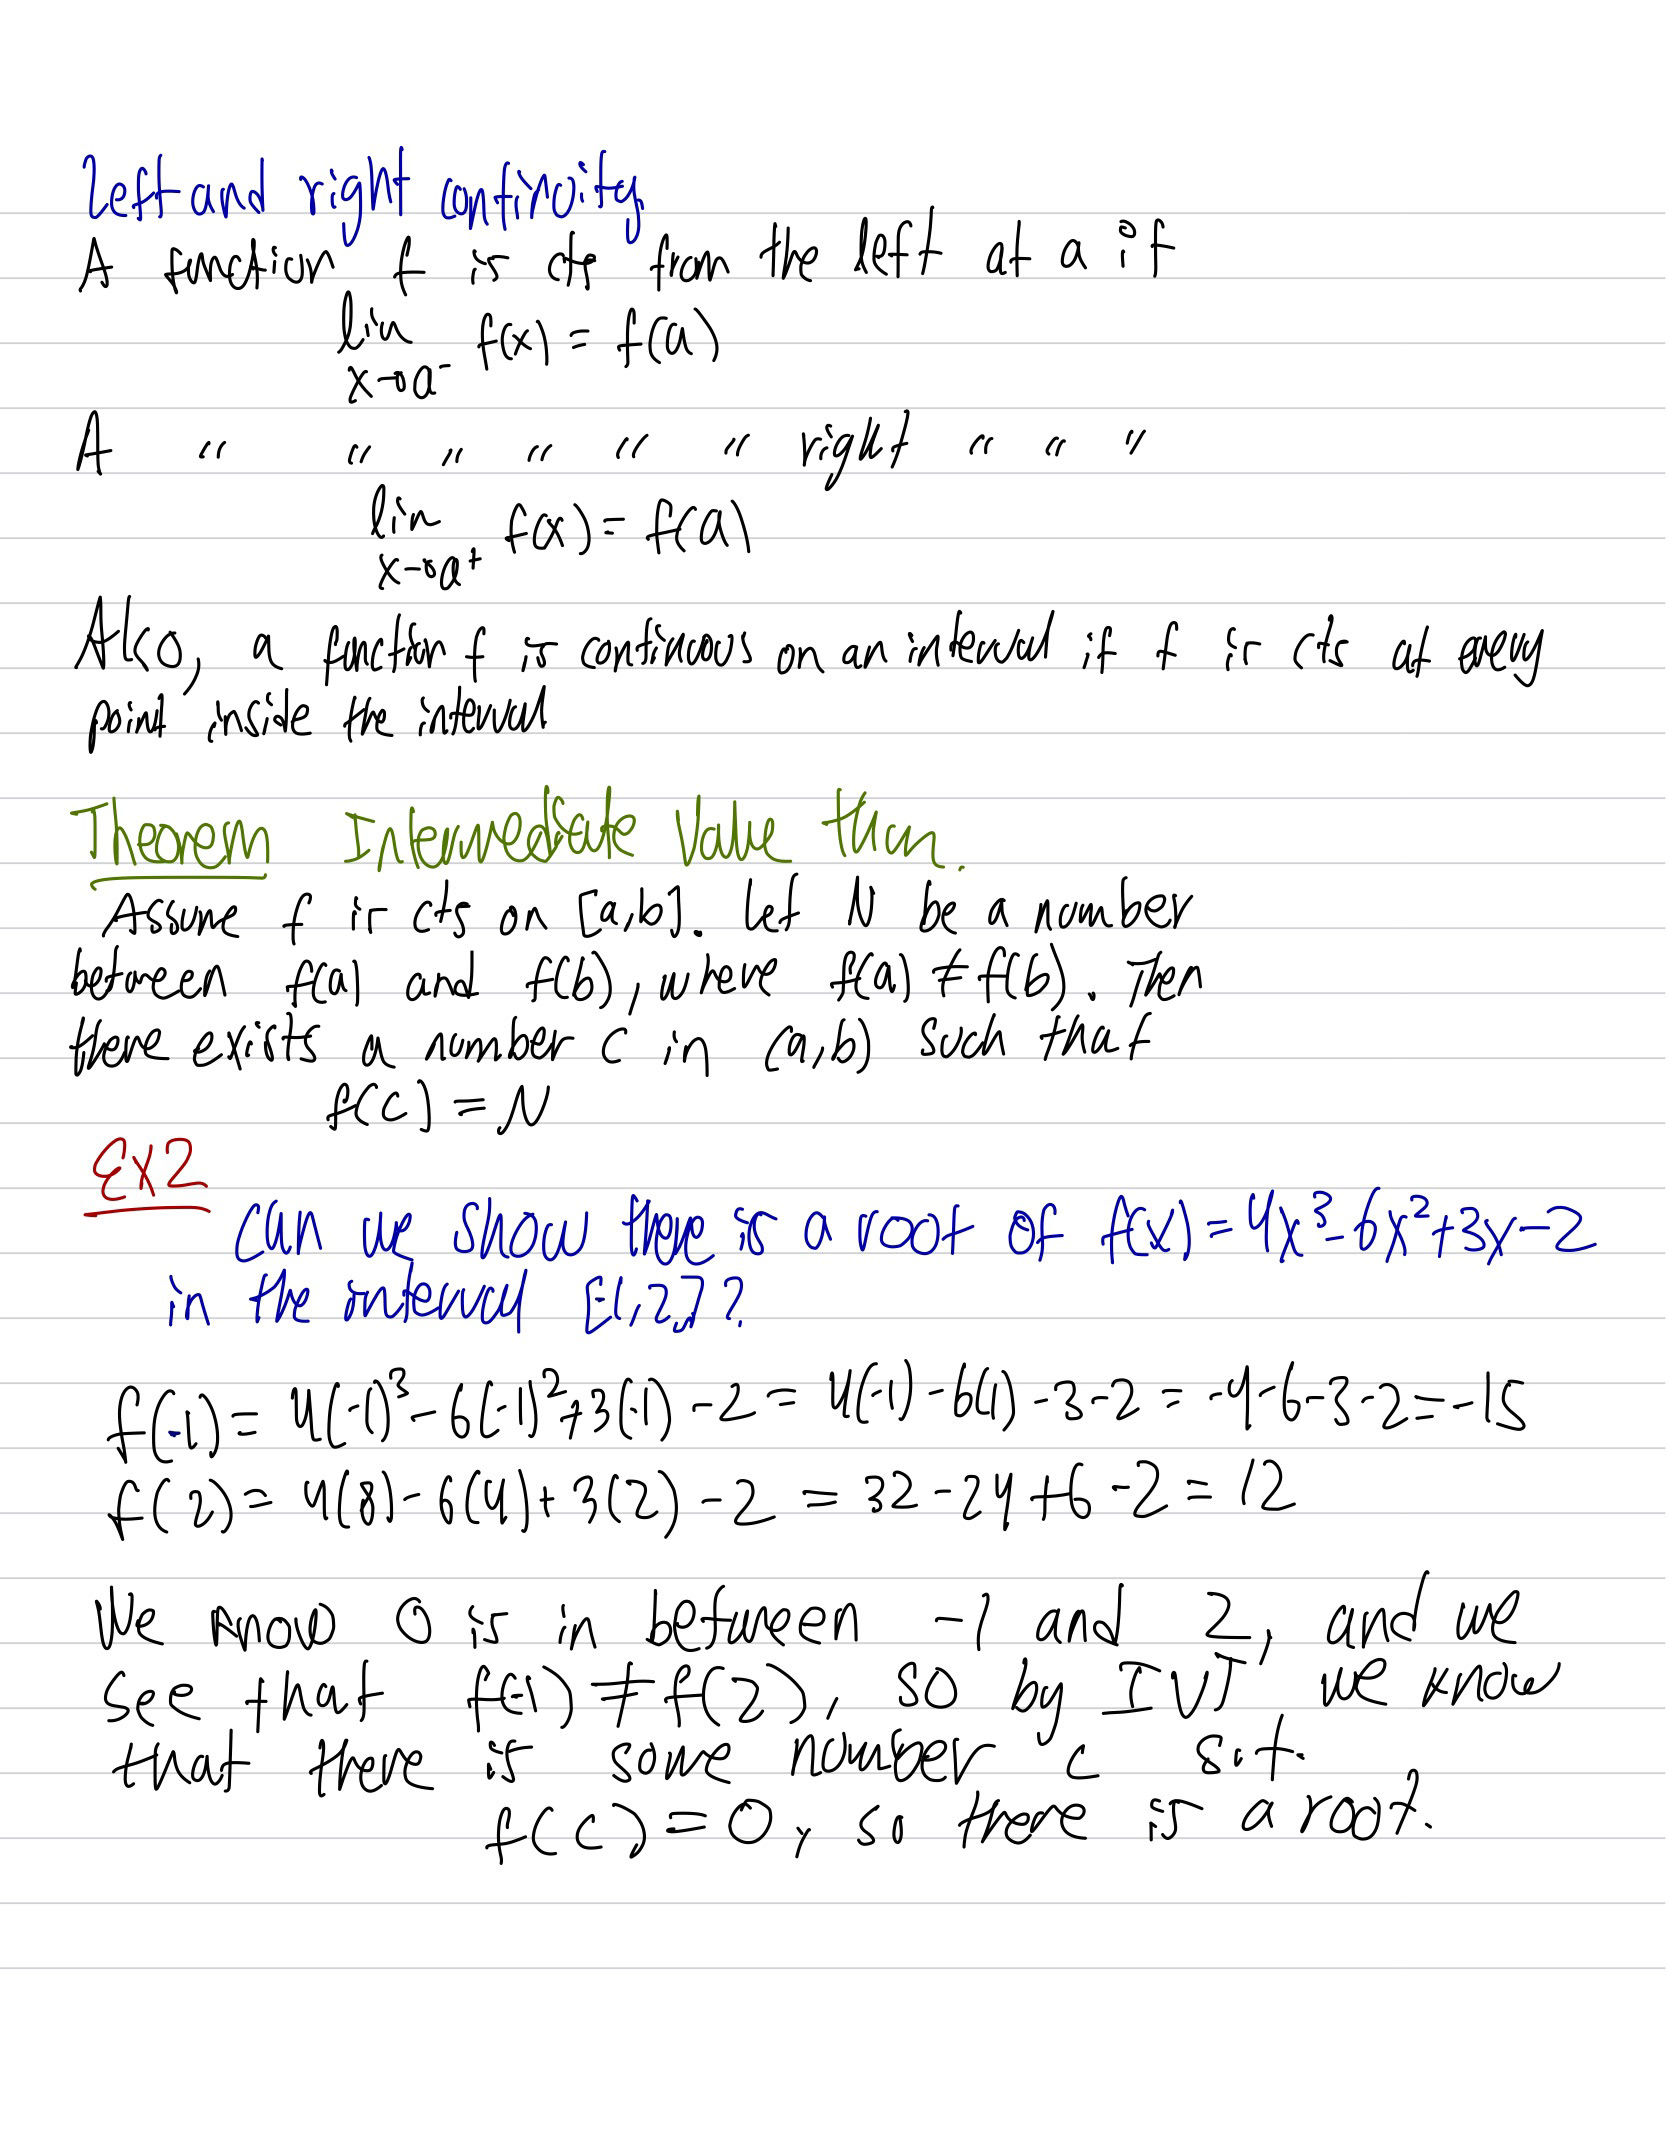 Left and right continuity
A function f is cts from the left at a if
lim f(x) = f(a)
x→a⁻
A " " " " " " right " " "
lim f(x) = f(a)
x→a⁺
Also, a function f is continuous on an interval if f is cts at every
point inside the interval
Theorem Intermediate Value thm.
Assume f is cts on [a,b]. Let N be a number
between f(a) and f(b), where f(a) ≠ f(b). Then
there exists a number c in (a,b) such that
f(c) = N
Ex2
Can we show there is a root of f(x) = 4x³-6x²+3x-2
in the interval [-1,2]?
f(-1) = 4(-1)³-6(-1)²+3(-1)-2 = 4(-1)-6(1)-3-2 = -4-6-3-2=-15
f(2) = 4(8)-6(4)+3(2)-2 = 32-24+6-2 = 12
We know 0 is in between -1 and 2, and we
see that f(-1) ≠ f(2), so by IVT we know
that there is some number c s.t.
f(c) = 0, so there is a root.